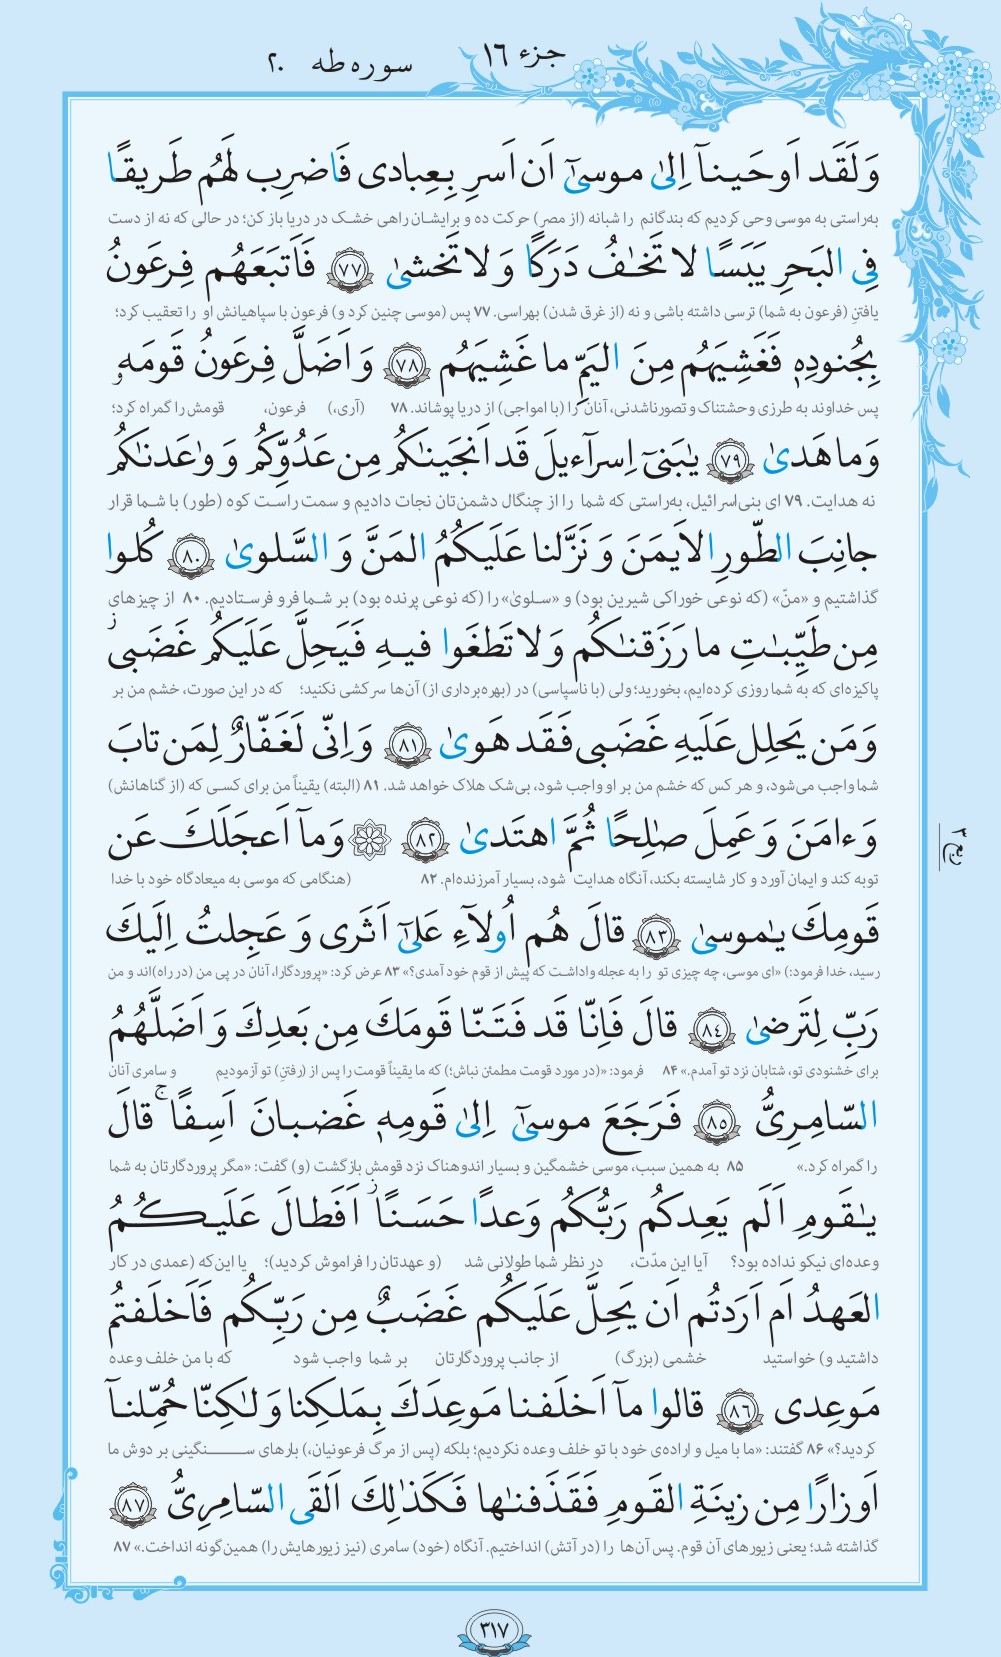 سوره طه ۲۰
جزء ۱۶
وَ لَقَد اَوحَینآ اِلیٰ موسیٰٓ اَن اَسرِ بِعِبادی فَاضرِب لَهُم طَریقًا
به‌راستی به موسی وحی کردیم که بندگانم را شبانه (از مصر) حرکت ده و برایشان راهی خشک در دریا باز کن؛ در حالی که نه از دست
فِی البَحرِ یَبَسًا لا تَخٰفُ دَرَکًا وَ لا تَخشیٰ ﴿۷۷﴾ فَاَتبَعَهُم فِرعَونُ
یافتنِ (فرعون به شما) ترسی داشته باشی و نه (از غرق شدن) بهراسی. ۷۷ پس (موسی چنین کرد و) فرعون با سپاهیانش او را تعقیب کرد؛
بِجُنودِهٖ فَغَشِیَهُم مِنَ الیَمِّ ما غَشِیَهُم ﴿۷۸﴾ وَ اَضَلَّ فِرعَونُ قَومَهٗ
پس خداوند به طرزی وحشتناک و تصورناشدنی، آنان را (با امواجی) از دریا پوشاند. ۷۸ (آری،) فرعون، قومش را گمراه کرد؛
وَ ما هَدیٰ ﴿۷۹﴾ یٰبَنیٓ اِسرآءیلَ قَد اَنجَینٰکُم مِن عَدُوِّکُم وَ وٰعَدنٰکُم
نه هدایت. ۷۹ ای بنی‌اسرائیل، به‌راستی که شما را از چنگال دشمن‌تان نجات دادیم و سمت راست کوه (طور) با شما قرار
جانِبَ الطّورِ الاَیمَنَ وَ نَزَّلنا عَلَیکُمُ المَنَّ وَ السَّلویٰ ﴿۸۰﴾ کُلوا
گذاشتیم و «منّ» (که نوعی خوراکی شیرین بود) و «سلویٰ» را (که نوعی پرنده بود) بر شما فرو فرستادیم. ۸۰ از چیزهای
مِن طَیِّبٰتِ ما رَزَقنٰکُم وَ لا تَطغَوا فیهِ فَیَحِلَّ عَلَیکُم غَضَبیۖز
پاکیزه‌ای که به شما روزی کرده‌ایم، بخورید؛ ولی (با ناسپاسی) در (بهره‌برداری از) آن‌ها سرکشی نکنید؛ که در این صورت، خشم من بر
وَ مَن یَحلِل عَلَیهِ غَضَبی فَقَد هَویٰ ﴿۸۱﴾ وَ اِنّی لَغَفّارٌ لِمَن تابَ
شما واجب می‌شود، و هر کس که خشم من بر او واجب شود، بی‌شک هلاک خواهد شد. ۸۱ (البته) یقیناً من برای کسی که (از گناهانش)
وَ ءامَنَ وَ عَمِلَ صٰلِحًا ثُمَّ اهتَدیٰ ﴿۸۲﴾ ۞ وَ مآ اَعجَلَکَ عَن
توبه کند و ایمان آورد و کار شایسته بکند، آنگاه هدایت شود، بسیار آمرزنده‌ام. ۸۲ (هنگامی که موسی به میعادگاه خود با خدا
ربع ۳
قَومِکَ یٰموسیٰ ﴿۸۳﴾ قالَ هُم اُولآءِ عَلیٰٓ اَثَری وَ عَجِلتُ اِلَیکَ
رسید، خدا فرمود:) «ای موسی، چه چیزی تو را به عجله واداشت که پیش از قوم خود آمدی؟» ۸۳ عرض کرد: «پروردگارا، آنان در پی من (در راه)اند و من
رَبِّ لِتَرضیٰ ﴿۸۴﴾ قالَ فَاِنّا قَد فَتَنّا قَومَکَ مِن بَعدِکَ وَ اَضَلَّهُمُ
برای خشنودی تو، شتابان نزد تو آمدم.» ۸۴ فرمود: «(در مورد قومت مطمئن نباش؛) که ما یقیناً قومت را پس از (رفتنِ) تو آزمودیم و سامری آنان
السّامِرِیُّ ﴿۸۵﴾ فَرَجَعَ موسیٰٓ اِلیٰ قَومِهٖ غَضبانَ اَسِفًاۚ قالَ
را گمراه کرد.» ۸۵ به همین سبب، موسی خشمگین و بسیار اندوهناک نزد قومش بازگشت (و) گفت: «مگر پروردگارتان به شما
یٰقَومِ اَلَم یَعِدکُم رَبُّکُم وَعدًا حَسَنًاز اَفَطالَ عَلَیکُمُ
وعده‌ای نیکو نداده بود؟ آیا این مدّت، در نظر شما طولانی شد (و عهدتان را فراموش کردید)؛ یا این‌که (عمدی در کار
العَهدُ اَم اَرَدتُم اَن یَحِلَّ عَلَیکُم غَضَبٌ مِن رَبِّکُم فَاَخلَفتُم
داشتید و) خواستید خشمی (بزرگ) از جانب پروردگارتان بر شما واجب شود که با من خلف وعده
مَوعِدی ﴿۸۶﴾ قالوا مآ اَخلَفنا مَوعِدَکَ بِمَلکِنا وَ لٰکِنّا حُمِّلنآ
کردید؟» ۸۶ گفتند: «ما با میل و اراده‌ی خود با تو خلف وعده نکردیم؛ بلکه (پس از مرگ فرعونیان،) بارهای سنگینی بر دوش ما
اَوزارًا مِن زینَةِ القَومِ فَقَذَفنٰها فَکَذٰلِکَ اَلقَی السّامِرِیُّ ﴿۸۷﴾
گذاشته شد؛ یعنی زیورهای آن قوم. پس آن‌ها را (در آتش) انداختیم. آنگاه (خود) سامری (نیز زیورهایش را) همین‌گونه انداخت.» ۸۷
۳۱۷